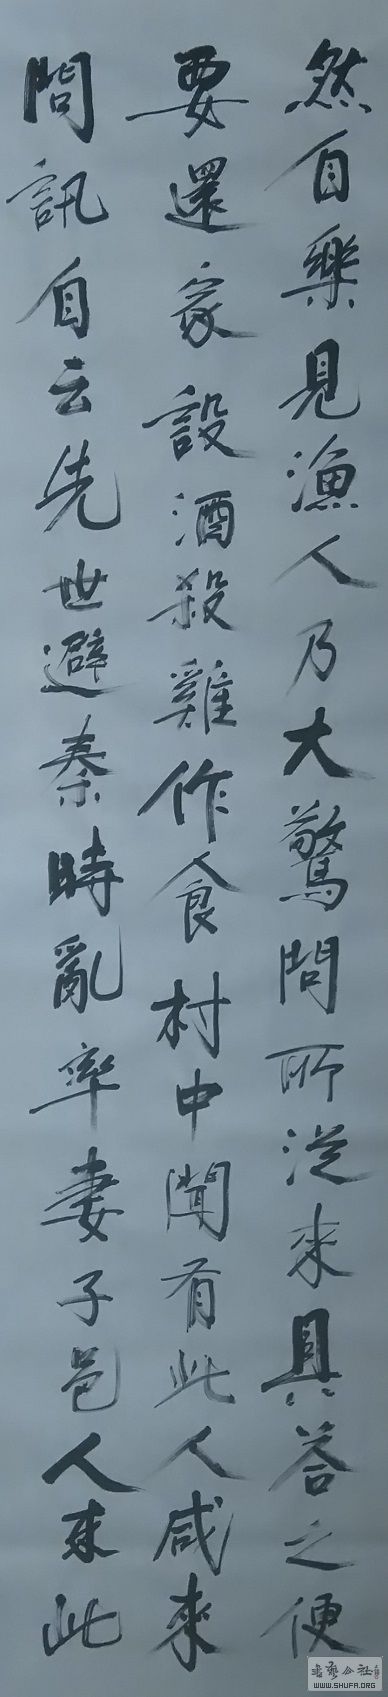 然自樂見漁人乃大驚問所從來具荅之便
要還家設酒殺雞作食村中聞有此人咸來
問訊自云先世避秦時亂率妻子邑人來此
書藝公社
WWW.SHUFA.ORG